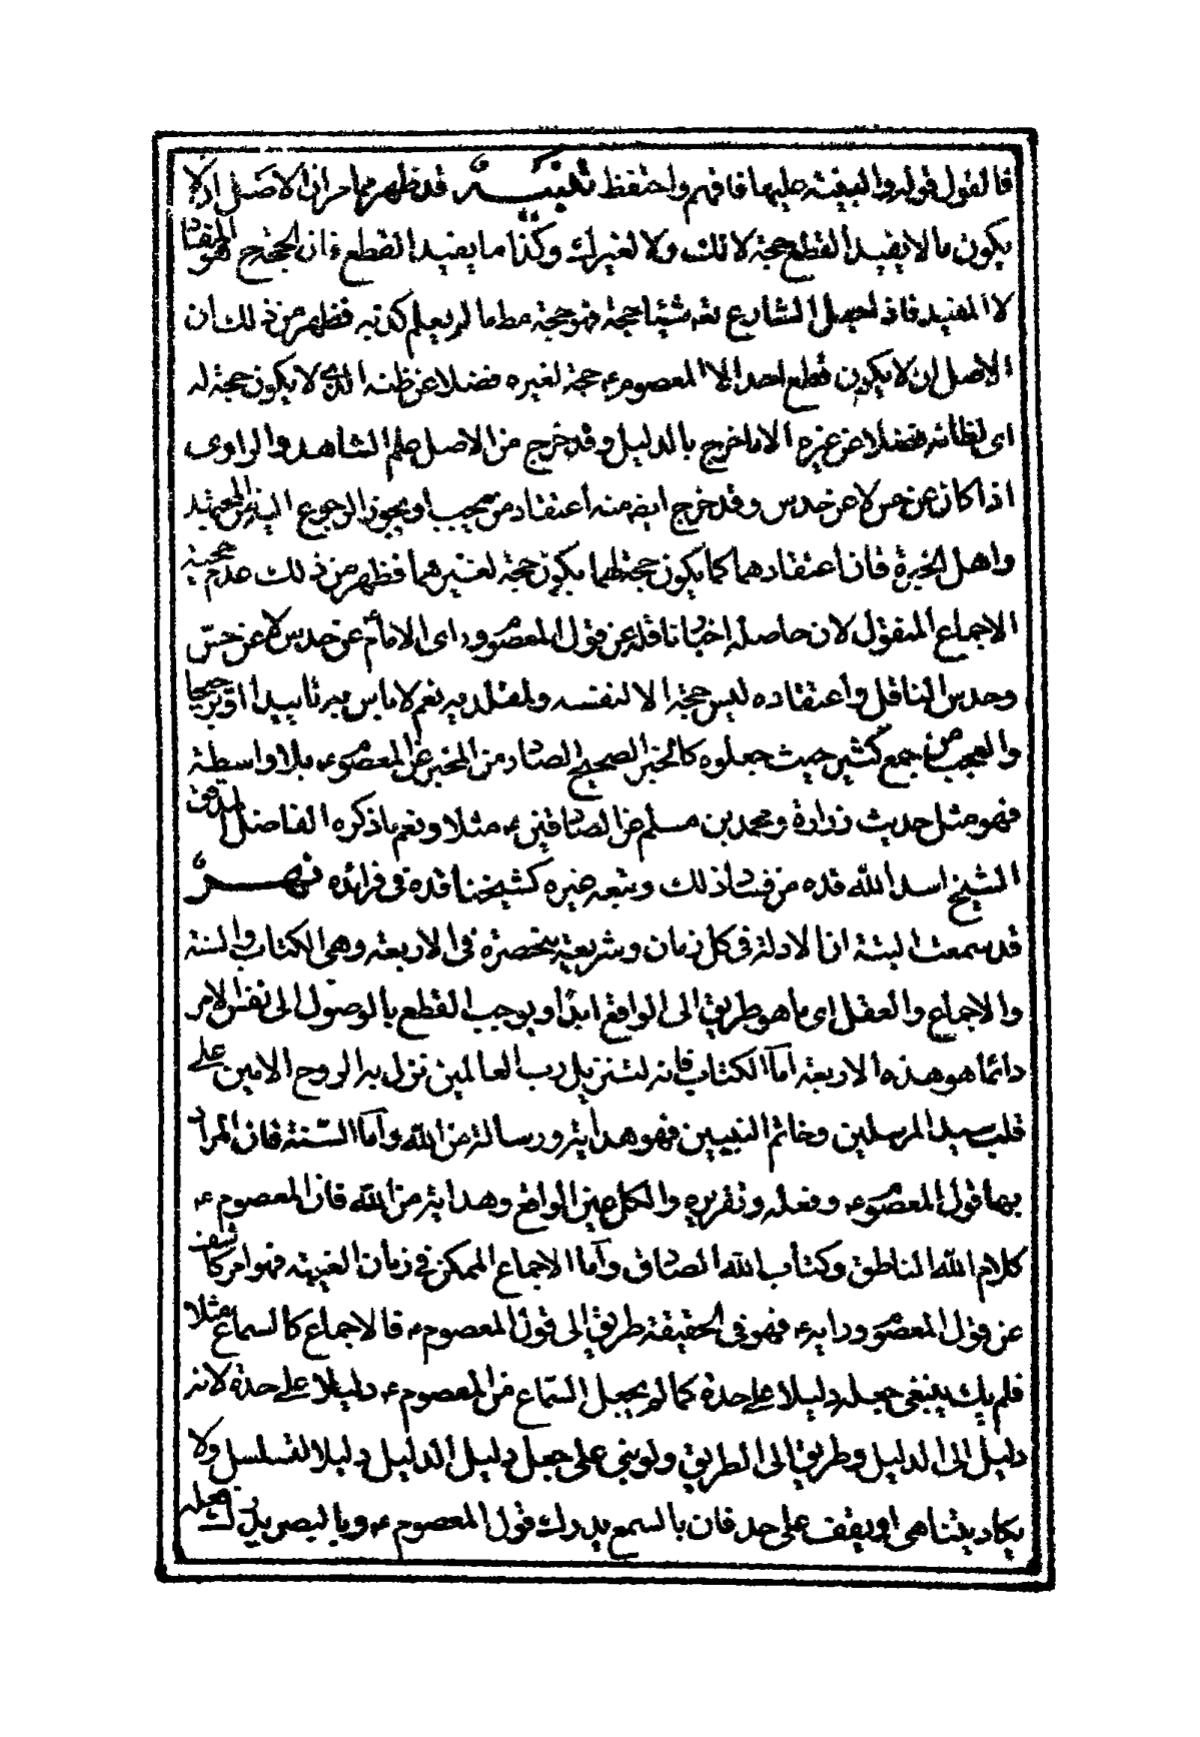 فالقول قوله والبينة عليها فافهم واحتفظ تنبيه قد ظهر مما مر ان الاصل ان لا
يكون ما لا يفيد القطع حجة لا لك ولا لغيرك وكذا ما يفيد القطع فان الحجة ح هو المفاد
لا المفيد فاذا جعل الشارع تعه شيئا حجة فهو حجة مطما لم يعلم كذبه فظهر من ذلك ان
الاصل ان لا يكون قطع احد الا المعصوم ع حجة لغيره فضلا عن ظنه الذي لا يكون حجة له
اى لظانه فضلا عن غيره الا ما خرج بالدليل وقد خرج من الاصل علم الشاهد والراوى
اذا كان عن حس لا عن حدس وقد خرج ايضه منه اعتقاد من يجب او يجوز الرجوع اليه من المجتهد
واهل الخبرة فان اعتقادهما كما يكون حجة لهما يكون حجة لغيرهما فظهر من ذلك عدم حجية
الاجماع المنقول لان حاصله اخبار ناقله عن قول المعصوم وراى الامام عن حدس لا عن حس
وحدس الناقل واعتقاده ليس حجة الا لنفسه ولمقلديه نعم لا باس به تاييدا او ترجيحا
والعجب من جمع كثير حيث جعلوه كالخبر الصحيح الصادر من المخبر عن المعصوم ع بلا واسطة
فهو مثل حديث زرارة ومحمد بن مسلم عن الصادقين ع مثلا ونعم ما ذكره الفاضل المدقق
الشيخ اسد الله قده من فساد ذلك وتبعه غيره كشيخنا قده فى فرائده نهر
قد سمعت البتة ان الادلة فى كل زمان وشريعة منحصرة فى الاربعة وهى الكتاب والسنة
والاجماع والعقل اى ما هو طريق الى الواقع ابدا ويوجب القطع بالوصول الى نفس الامر
دائما هو هذه الاربعة اما الكتاب فانه لتنزيل رب العالمين نزل به الروح الامين على
قلب سيد المرسلين وخاتم النبيين فهو هداية ورسالة من الله واما السنة فان المراد
بها قول المعصوم ع وفعله وتقريره والكل عين الواقع وهداية من الله فان المعصوم ع
كلام الله الناطق وكتاب الله الصادق واما الاجماع الممكن فى زمان الغيبة فهو امر كاشف
عن قول المعصوم ورايه ع فهو فى الحقيقة طريق الى قول المعصوم ع فالاجماع كالسماع مثلا
فلم يك ينبغى جعله دليلا على حدة كما لم يجعل السماع من المعصوم ع دليلا على حدة لانه
دليل الى الدليل وطريق الى الطريق ولو بنى على جعل دليل الدليل دليلا لتسلسل ولا
يكاد يتناهى او يقف على حد فان بالسمع يدرك قول المعصوم ع وبالبصر يدرك فعله